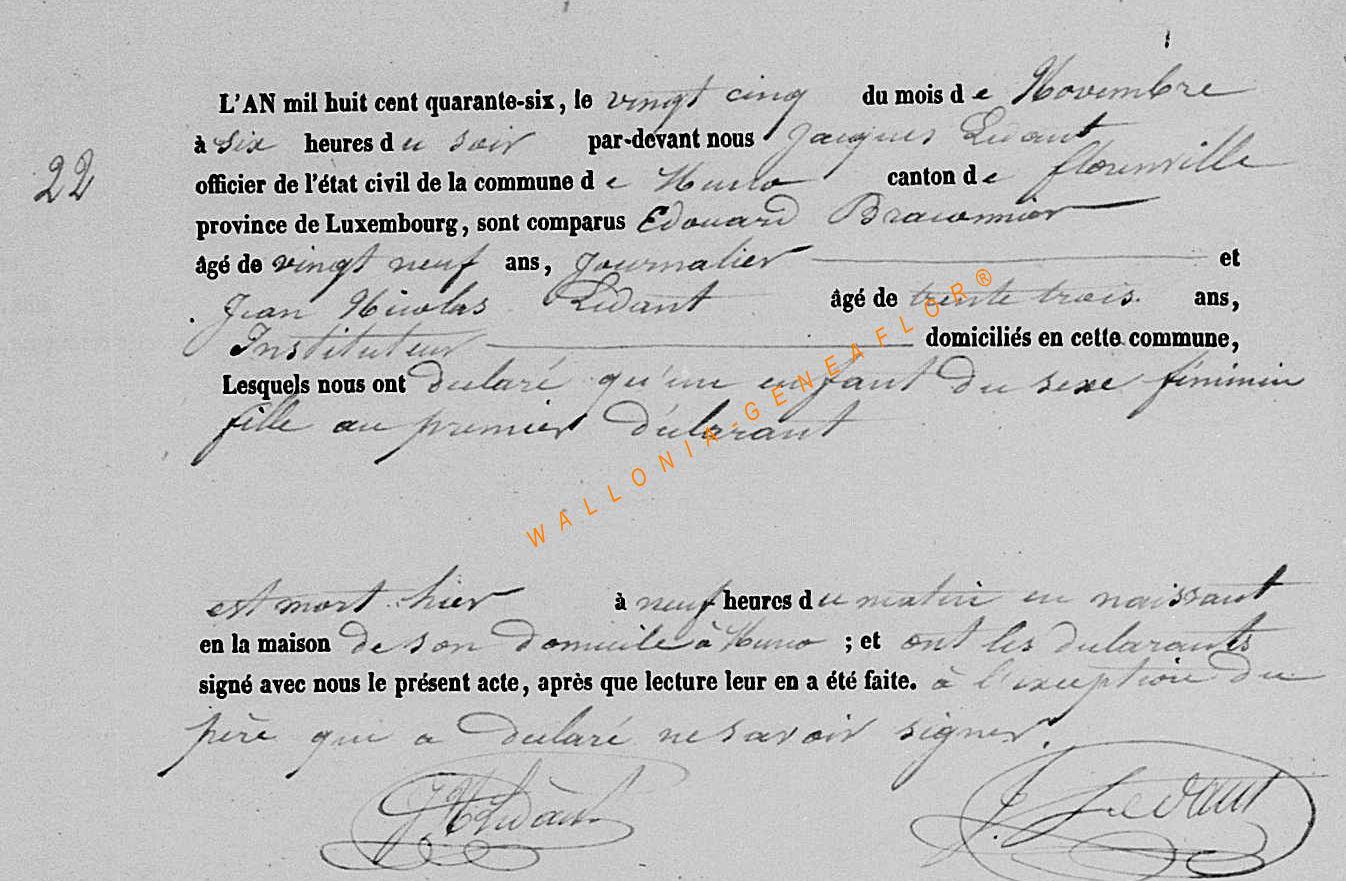 L'AN mil huit cent quarante-six, le vingt cinq du mois de Novembre
à six heures du soir par-devant nous Jacques Lédant
22
officier de l'état civil de la commune de Muno canton de florenville
province de Luxembourg, sont comparus Edouard Braconnier
âgé de vingt neuf ans, Journalier et
Jean Nicolas Lédant âgé de trente trois. ans,
Instituteur domiciliés en cette commune,
Lesquels nous ont déclaré qu'un enfant du sexe féminin
fille au premier déclarant
WALLONIA-GENEAFLOR®
est mort hier à neuf heures du matin en naissant
en la maison de son domicile à Muno ; et ont les déclarants
signé avec nous le présent acte, après que lecture leur en a été faite. à l'exception du
père qui a déclaré ne savoir signer.
JN Lédant J. Lédant